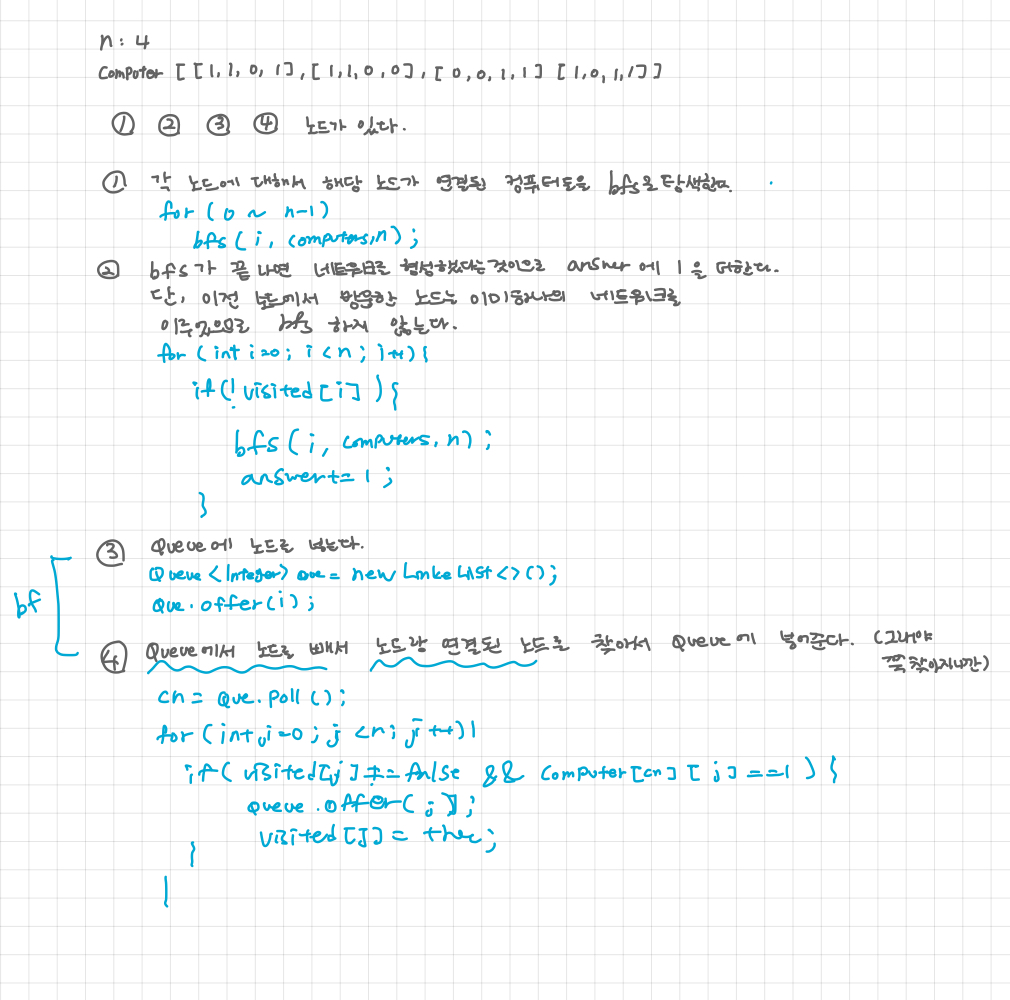 n : 4
Computer [ [ 1, 1, 0, 1 ], [ 1, 1, 0, 0 ], [ 0, 0, 1, 1 ] [ 1, 0, 1, 1 ] ]
① ② ③ ④ 노드가 있다.
① 각 노드에 대해서 해당 노드가 연결된 컴퓨터들을 bfs로 탐색한다.
for ( 0 ~ n-1)
bfs ( i, computers, n ) ;
② bfs가 끝나면 네트워크를 형성했다는것이므로 answer에 1을 더한다.
단, 이전 노드에서 방문한 노드는 이미 하나의 네트워크를
이루었으므로 bfs 하지 않는다.
for ( int i=0; i < n ; i++) {
if (! visited [ i ] ) {
bfs ( i, computers, n ) ;
answer += 1 ;
}
③ Queue에 노드를 넣는다.
Queue < Integer> que = new LinkeList < > ( ) ;
que. offer ( i ) ;
bf
④ Queue에서 노드를 빼서 노드랑 연결된 노드를 찾아서 Queue에 넣어준다. (그래야
쭉 찾아지니깐)
cn = que. poll ( ) ;
for ( int j=0 ; j < n ; j++) {
if ( visited [ j ] == false && computer [ cn ] [ j ] == 1 ) {
queue . offer ( j ) ;
visited [ J ] = true ;
}
}